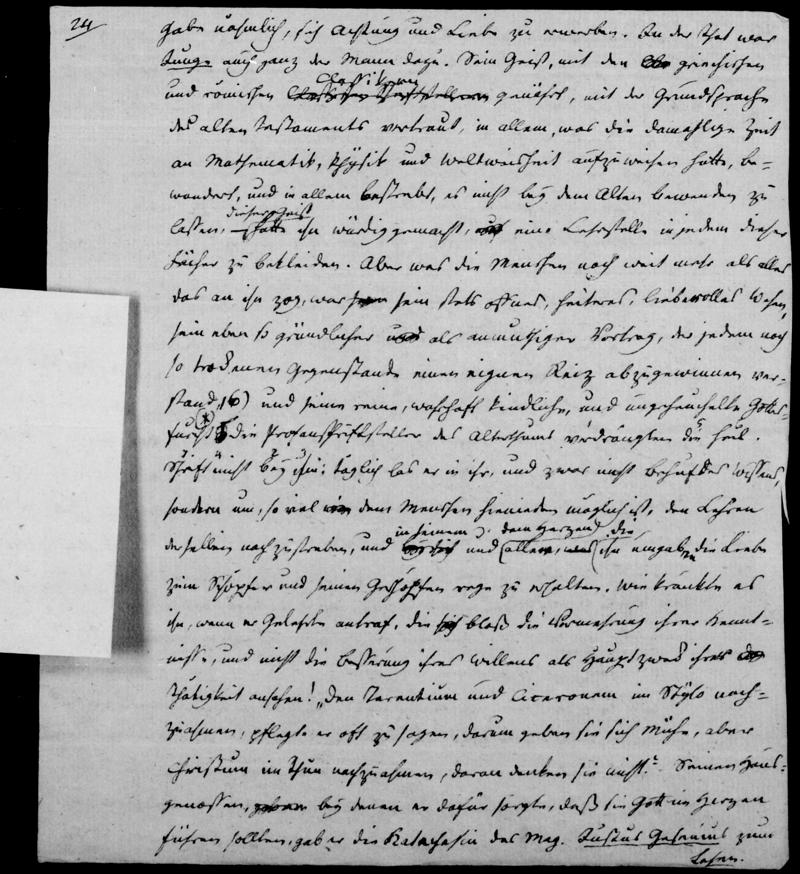 24
Gabe nähmlich, sich Achtung und Liebe zu erwerben. In der That war
Junge auch ganz der Mann dazu. Sein Geist, mit den griechischen
Classikern
und römischen genährt, mit der Grundsprache
des alten Testaments vertraut, in allem, was die damahlige Zeit
an Mathematik, Physik und Weltweisheit aufzuweisen hatte, be-
wandert, und in allem bestrebt, es nicht bey dem Alten bewenden zu
dieser Geist
lassen, hatte ihn würdig gemacht, eine Lehrstelle in jedem dieser
Fächer zu bekleiden. Aber was die Menschen noch weit mehr als alles
das an ihn zog, war sein stets offnes, heiteres, liebevolles Wesen,
sein eben so gründlicher als anmuthiger Vortrag, der jedem noch
so trockenen Gegenstande einen eignen Reiz abzugewinnen ver-
stand, 16) und seine reine, wahrhaft kindliche, und ungeheuchelte Gottes-
furcht. Die Profanschriftsteller des Alterthums verdrängten die heil.
Schrift nicht bey ihm: täglich las er in ihr, und zwar nicht behuf des Wissens,
sondern um, so viel dem Menschen hienieden möglich ist, den Lehren
in seinem dem Herzen die
derselben nachzustreben, und und aller, ihn umgaben, die Liebe
zum Schöpfer und seinen Geschöpfen rege zu erhalten. Wie kränkte es
ihn, wenn er Gelehrte antraf, die bloß die Vermehrung ihrer Kennt-
nisse, und nicht die Besserung ihres Willens als Hauptzweck ihrer
Thätigkeit ansahen! „Den Terentium und Ciceronem im Stylo nach-
zuahmen, pflegte er oft zu sagen, darum geben sie sich Mühe, aber
Christum im Thun nachzuahmen, daran denken sie nicht." Seinen Haus-
genossen, bey denen er dafür sorgte, daß sie Gott im Herzen
führen sollten, gab er die Katechesin des Mag. Justus Gesenius zum
Lesen.